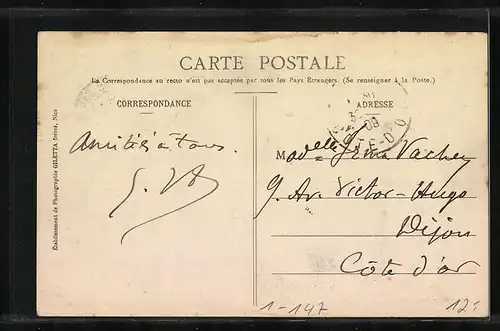 CARTE POSTALE
La Correspondance au recto n'est pas acceptée par tous les Pays Etrangers. (Se renseigner à la Poste.)
CORRESPONDANCE
ADRESSE
Établissement de Photographie GILETTA frères, Nice
Amitiés à tous.
Madelle Vachey
9. Av. Victor-Hugo
Dijon
Côte d'or
1-147